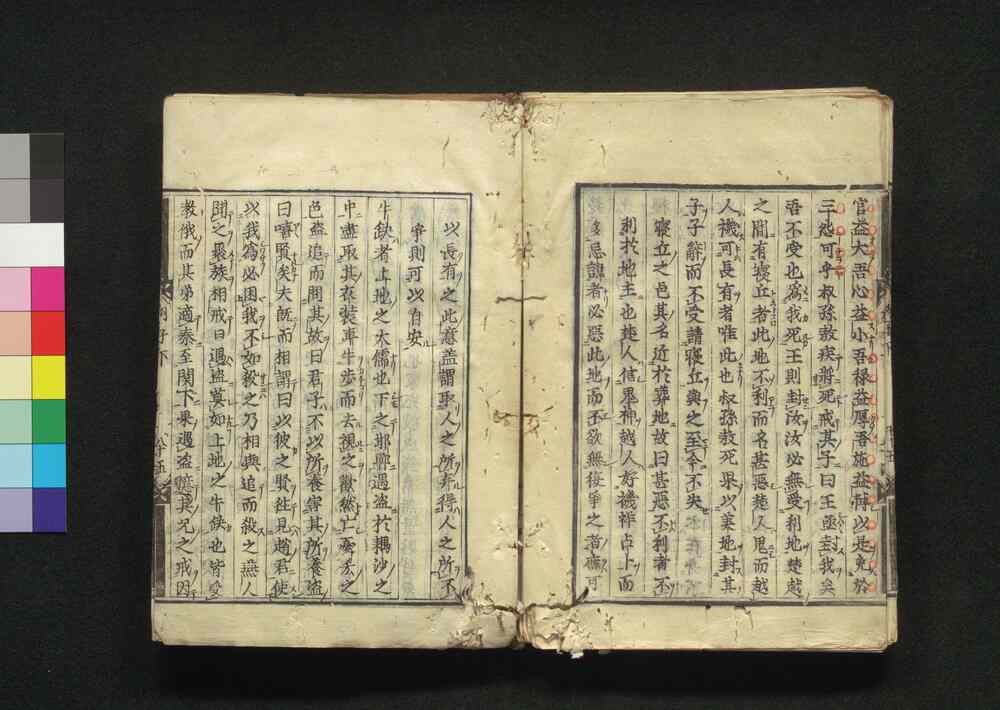 官益大吾心益小吾祿益厚吾施益博以是免於
三怨可乎叔孫敖疾將死戒其子曰王亟封我矣
吾不受也為我死王則封汝汝必無受利地楚越
之間有寢丘者此地不利而名甚惡楚人鬼而越
人禨可長有者唯此也叔孫敖死果以美地封其
子子辭而不受請寢丘與之至今不失
寢丘之邑其名近於葬地故曰甚惡不利者不
利於地主也楚人信鬼神越人好禨祥占卜而
多忌諱者必惡此地而不欲無後爭之者庶可
以長有之此意蓋謂聖人之所弃得人之所不
爭則可以自安
牛缺者上地之大儒也下之邯鄲遇盜於耦沙之
中盡取其衣裝車牛步而去視之歡然亡憂吝之
色盜追而問其故曰君子不以所養害其所養盜
曰嘻賢矣夫既而相謂曰以彼之賢往見趙君使
以我為必困我不如殺之乃相與追而殺之燕人
聞之聚族相戒曰遇盜莫如上地之牛缺也皆受
教俄而其弟適秦至關下果遇盜憶其兄之戒因